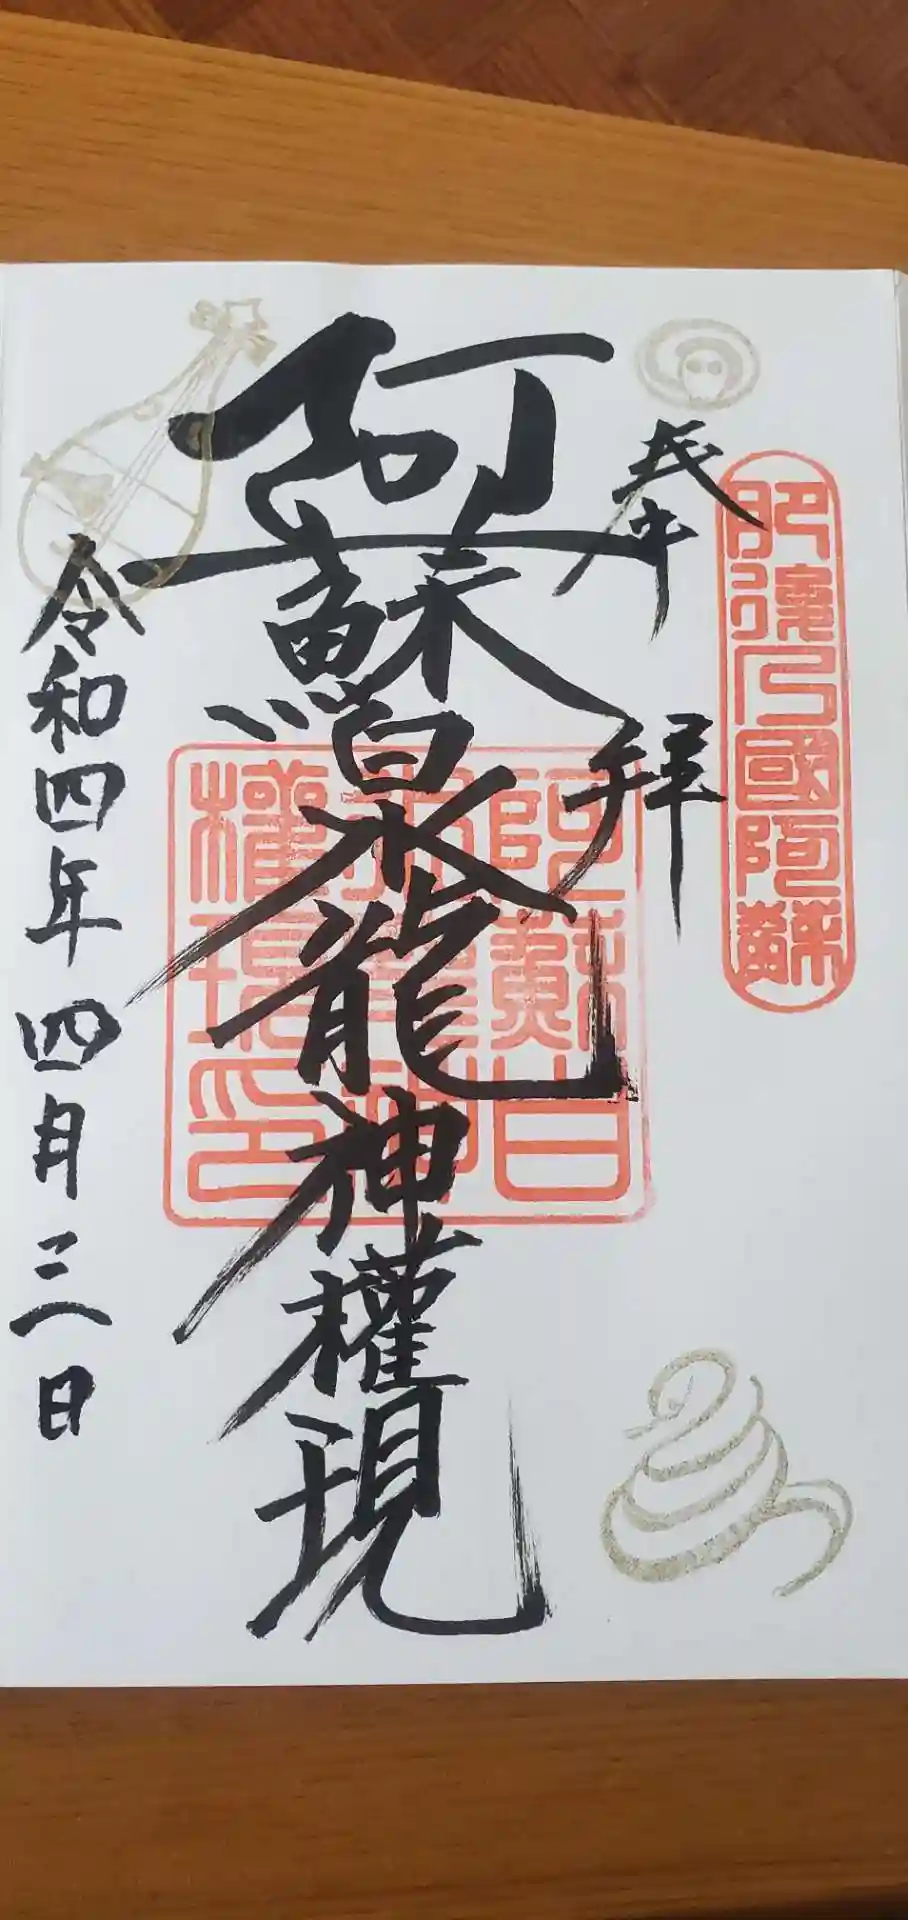 肥後乃國阿蘇
奉拜
阿蘇白水龍神權現
阿蘇白
水龍神
權現印
令和四年四月三日